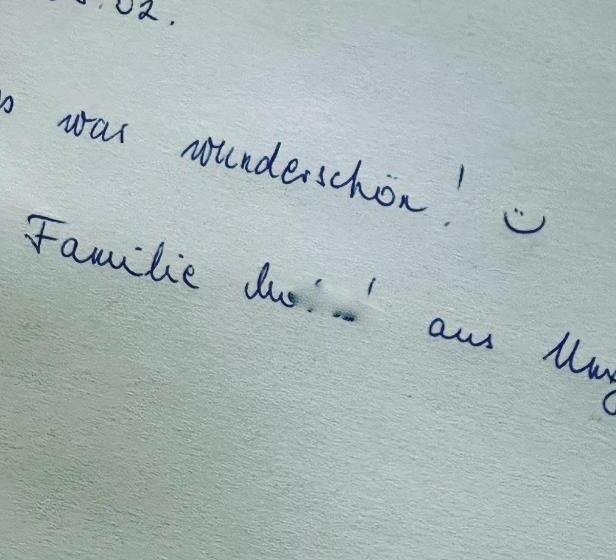 .02.
war wunderschön! ü
Familie aus